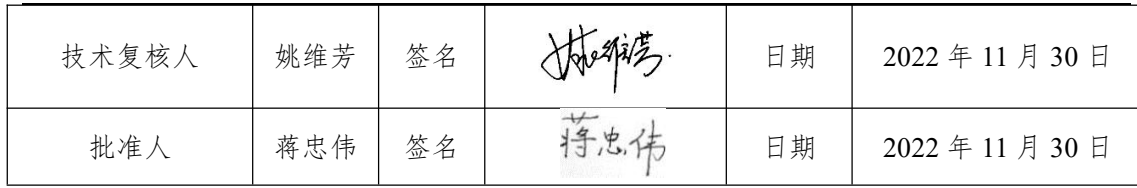 技术复核人 姚维芳 签名 姚维芳 日期 2022 年 11 月 30 日
批准人 蒋忠伟 签名 蒋忠伟 日期 2022 年 11 月 30 日